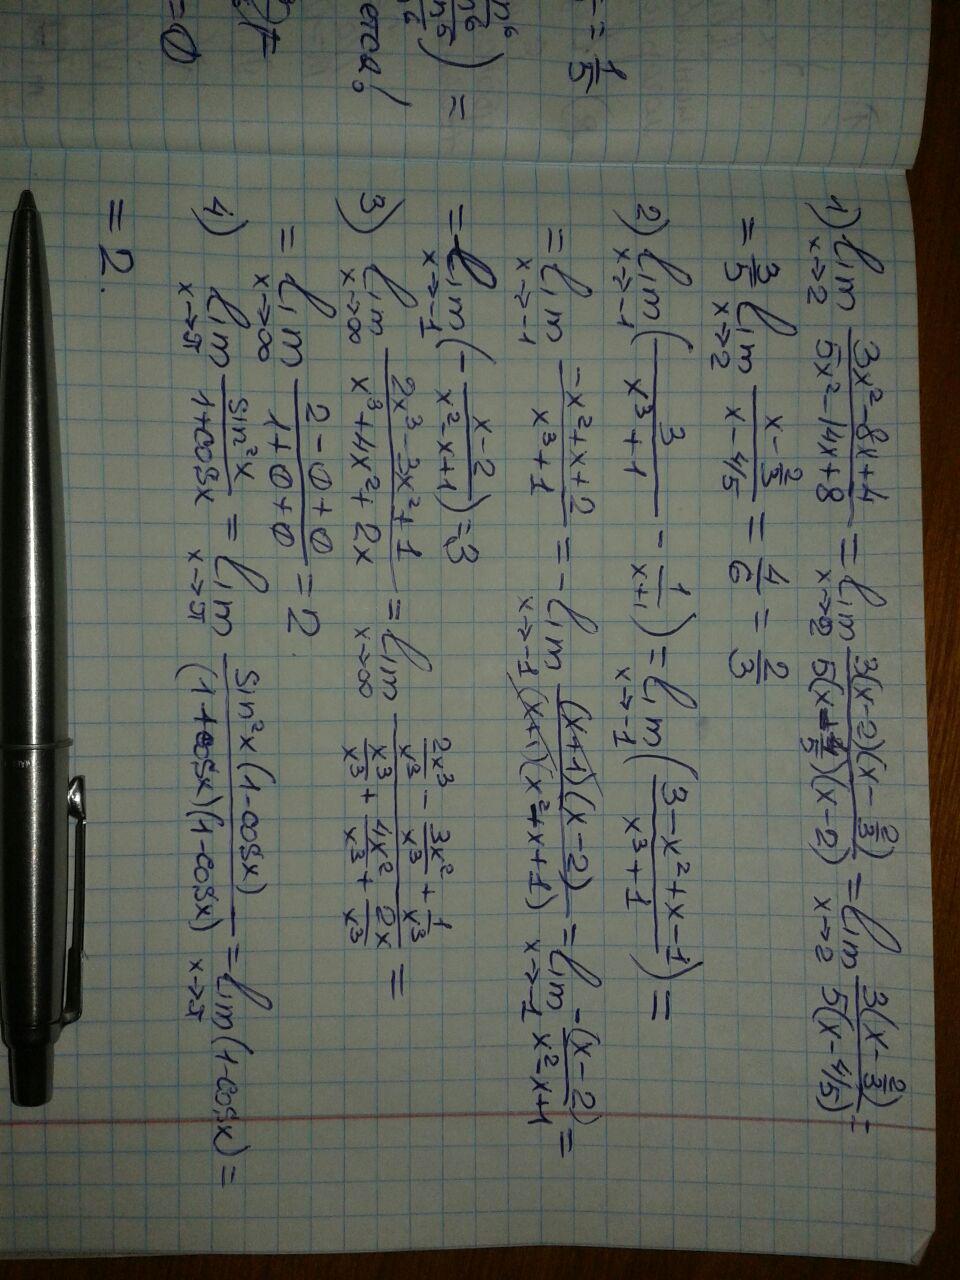 = 1/5
n⁶
n⁶ n⁵ ) =
ется!
= 0
1) lim x→2 (3x² - 8x + 4)/(5x² - 14x + 8) = lim x→2 3(x-2)(x - 2/3)/5(x - 4/5)(x-2) = lim x→2 3(x - 2/3)/5(x - 4/5) =
= 3/5 lim x→2 (x - 2/3)/(x - 4/5) = 4/6 = 2/3
2) lim x→-1 ( 3/(x³+1) - 1/(x+1) ) = lim x→-1 ( (3 - x² + x - 1)/(x³+1) ) =
= lim x→-1 (-x² + x + 2)/(x³+1) = - lim x→-1 (x+1)(x-2)/(x+1)(x² + x + 1) = lim x→-1 -(x-2)/(x² - x + 1) =
= lim x→-1 ( - (x-2)/(x² - x + 1) ) = 3
3) lim x→∞ (2x³ - 3x² + 1)/(x³ + 4x² + 2x) = lim x→∞ (2x³/x³ - 3x²/x³ + 1/x³)/(x³/x³ + 4x²/x³ + 2x/x³) =
= lim x→∞ (2 - 0 + 0)/(1 + 0 + 0) = 2.
4) lim x→π sin²x/(1+cosx) = lim x→π sin²x(1-cosx)/(1+cosx)(1-cosx) = lim x→π (1-cosx) =
= 2.